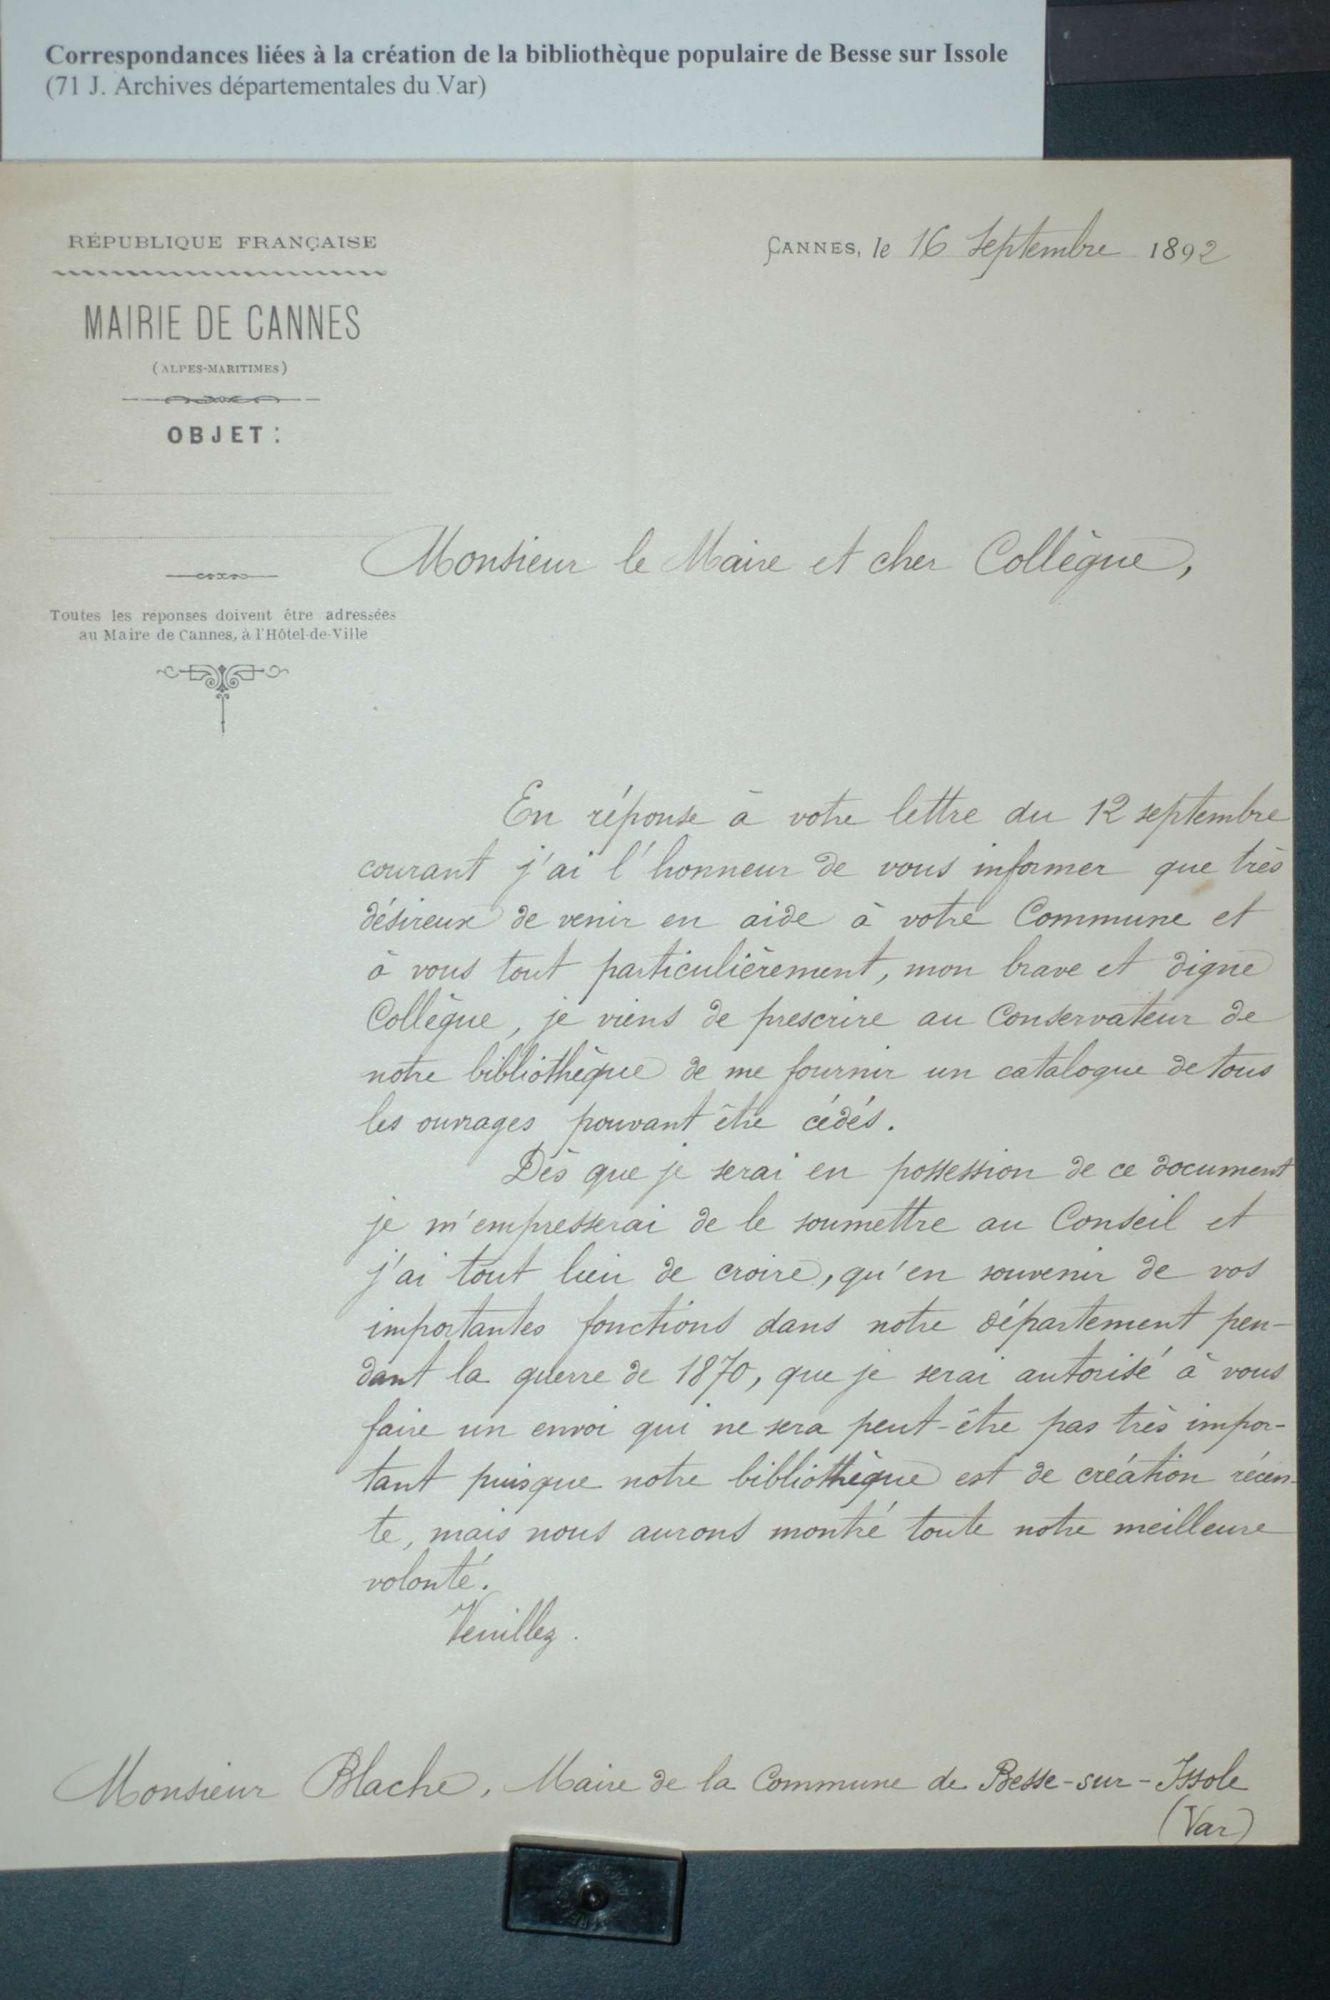 Correspondances liées à la création de la bibliothèque populaire de Besse sur Issole
(71 J. Archives départementales du Var)
RÉPUBLIQUE FRANÇAISE
MAIRIE DE CANNES
(ALPES-MARITIMES)
OBJET :
Toutes les réponses doivent être adressées
au Maire de Cannes, à l'Hôtel-de-Ville
CANNES, le 16 Septembre 1892
Monsieur le Maire et cher Collègue,
En réponse à votre lettre du 12 septembre
courant j'ai l'honneur de vous informer que très
désireux de venir en aide à votre Commune et
à vous tout particulièrement, mon brave et digne
Collègue, je viens de prescrire au Conservateur de
notre bibliothèque de me fournir un catalogue de tous
les ouvrages pouvant être cédés.
Dès que je serai en possession de ce document
je m'empresserai de le soumettre au Conseil et
j'ai tout lieu de croire, qu'en souvenir de vos
importantes fonctions dans notre département pen-
dant la guerre de 1870, que je serai autorisé à vous
faire un envoi qui ne sera peut-être pas très impor-
tant puisque notre bibliothèque est de création récen-
te, mais nous aurons montré toute notre meilleure
volonté.
Veuillez.
Monsieur Blache, Maire de la Commune de Besse-sur-Issole
(Var)